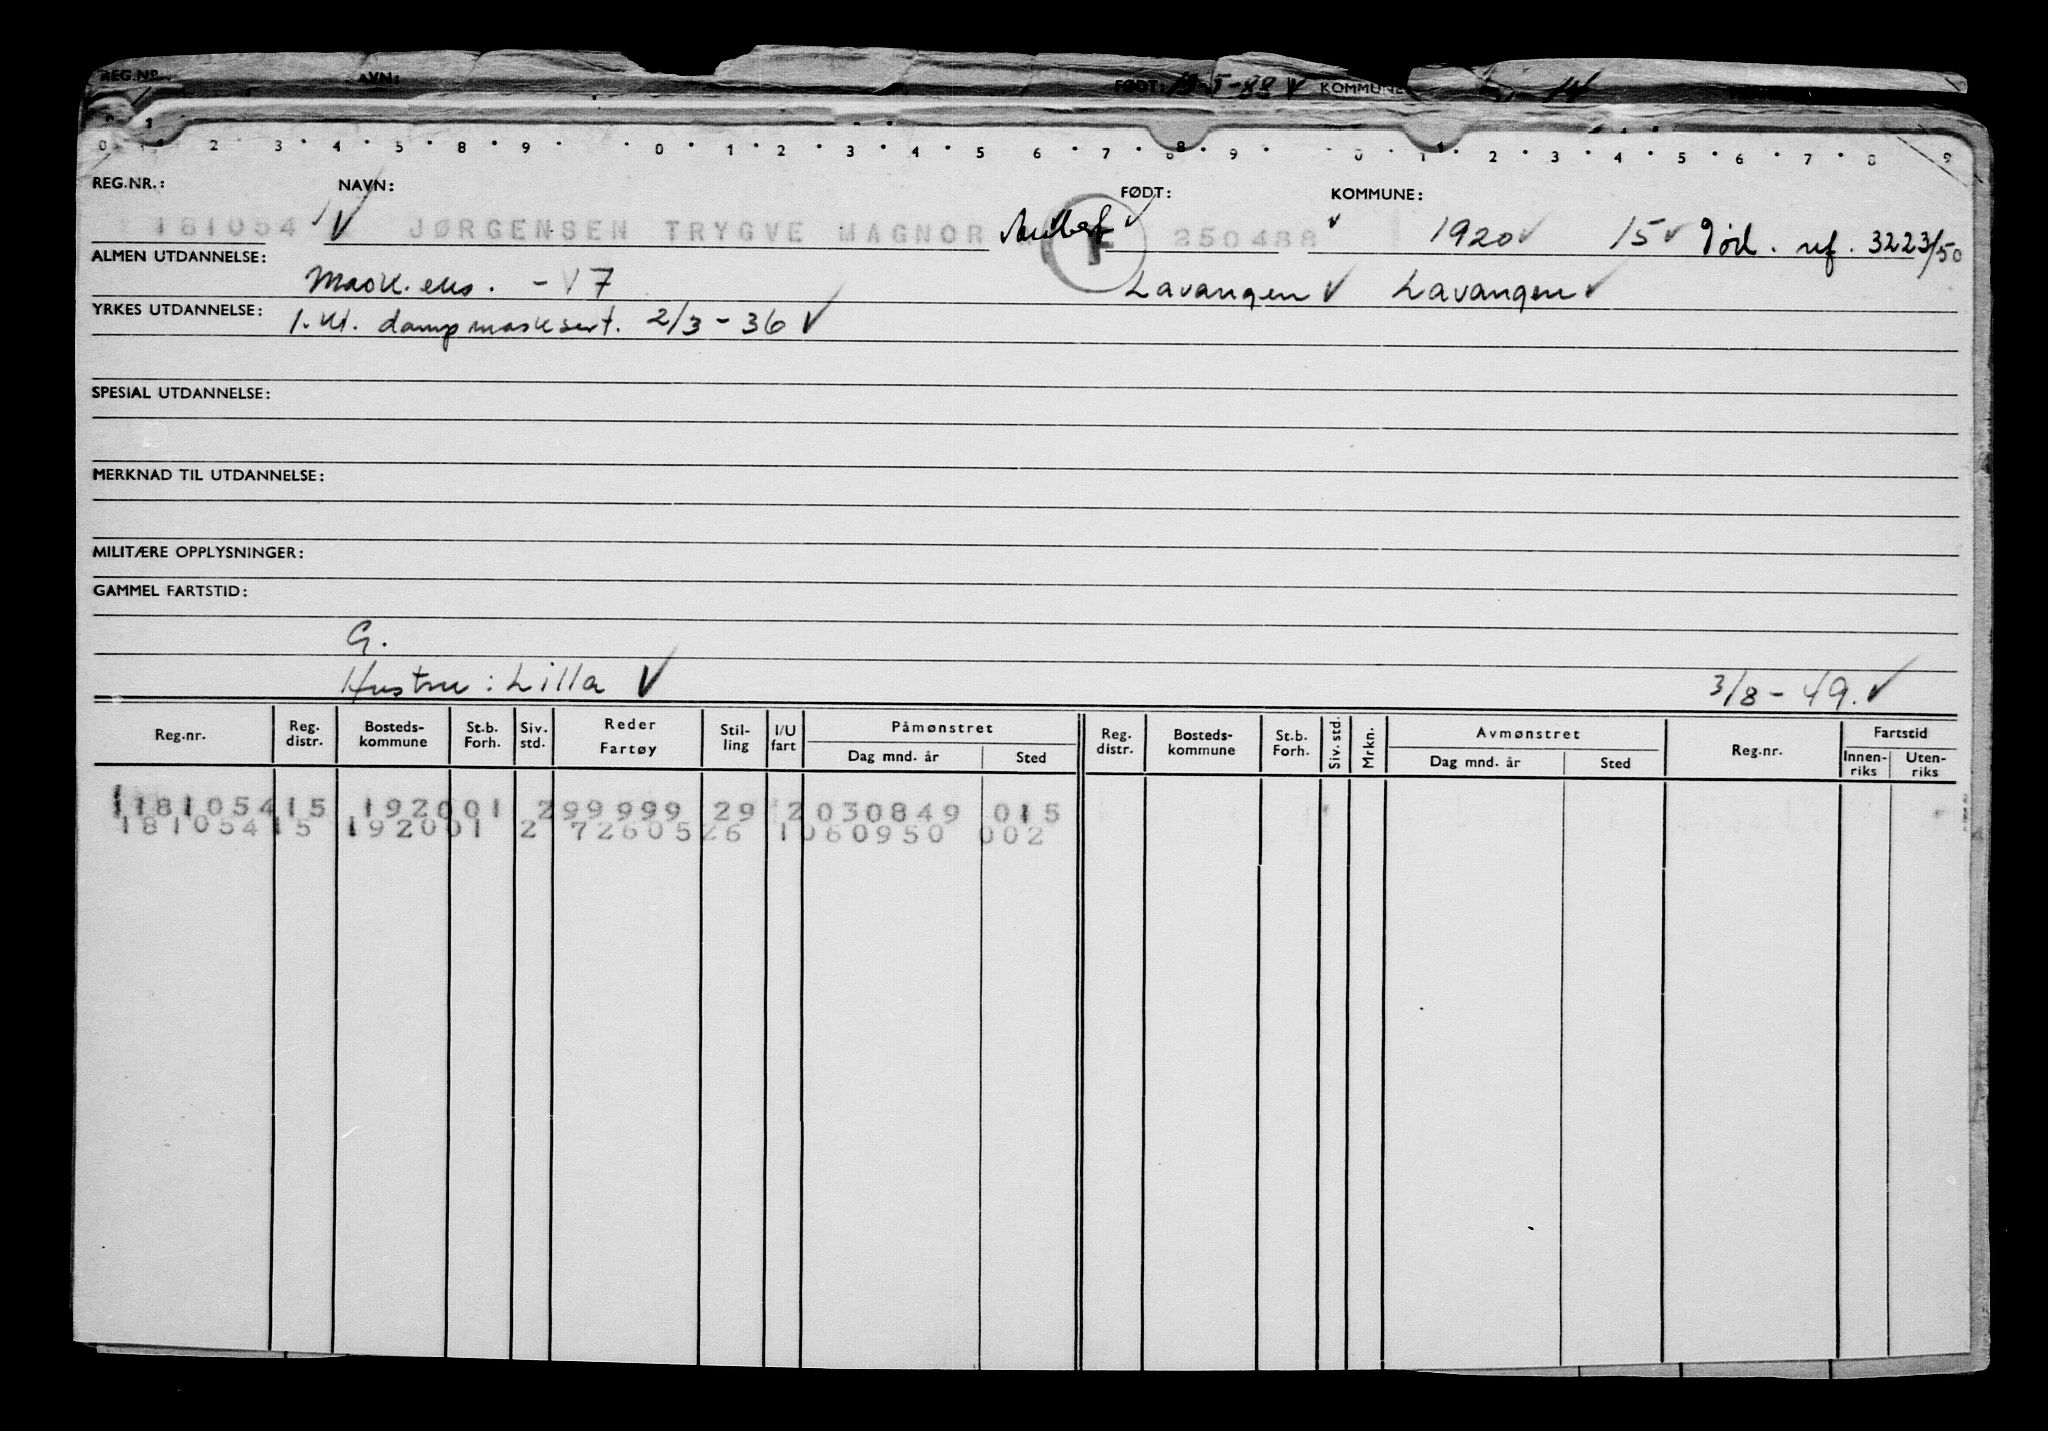 REG.NR. AVN: FØDT: -88 V KOMMUNE
0 1 2 3 4 5 8 9 0 1 2 3 4 5 6 7 8 9 0 1 2 3 4 5 6 7 8 9
REG.NR.: NAVN: FØDT: KOMMUNE:
181054 V JØRGENSEN TRYGVE MAGNOR F 250488 1920 15 Død. ref. 3223/50
ALMEN UTDANNELSE: Mask. eks. - 17 Lavangen V Lavangen
YRKES UTDANNELSE: 1. kl. damp masksert. 2/3 - 36 V
SPESIAL UTDANNELSE:
MERKNAD TIL UTDANNELSE:
MILITÆRE OPPLYSNINGER:
GAMMEL FARTSTID:
G.
Hustru: Lilla V 3/8 - 49.
Reg.nr. Reg. distr. Bosteds-kommune St.b. Forh. Siv. std. Reder Fartøy Stil-ling I/U fart Påmønstret Dag mnd. år Sted Reg. distr. Bosteds-kommune St.b. Forh. Siv. std. Mrkn. Avmønstret Dag mnd. år Sted Reg.nr. Fartstid Innen-riks Uten-riks
18105415 192001 299999 29 2 030849 015
18105415 192001 2 7260526 1060950 002